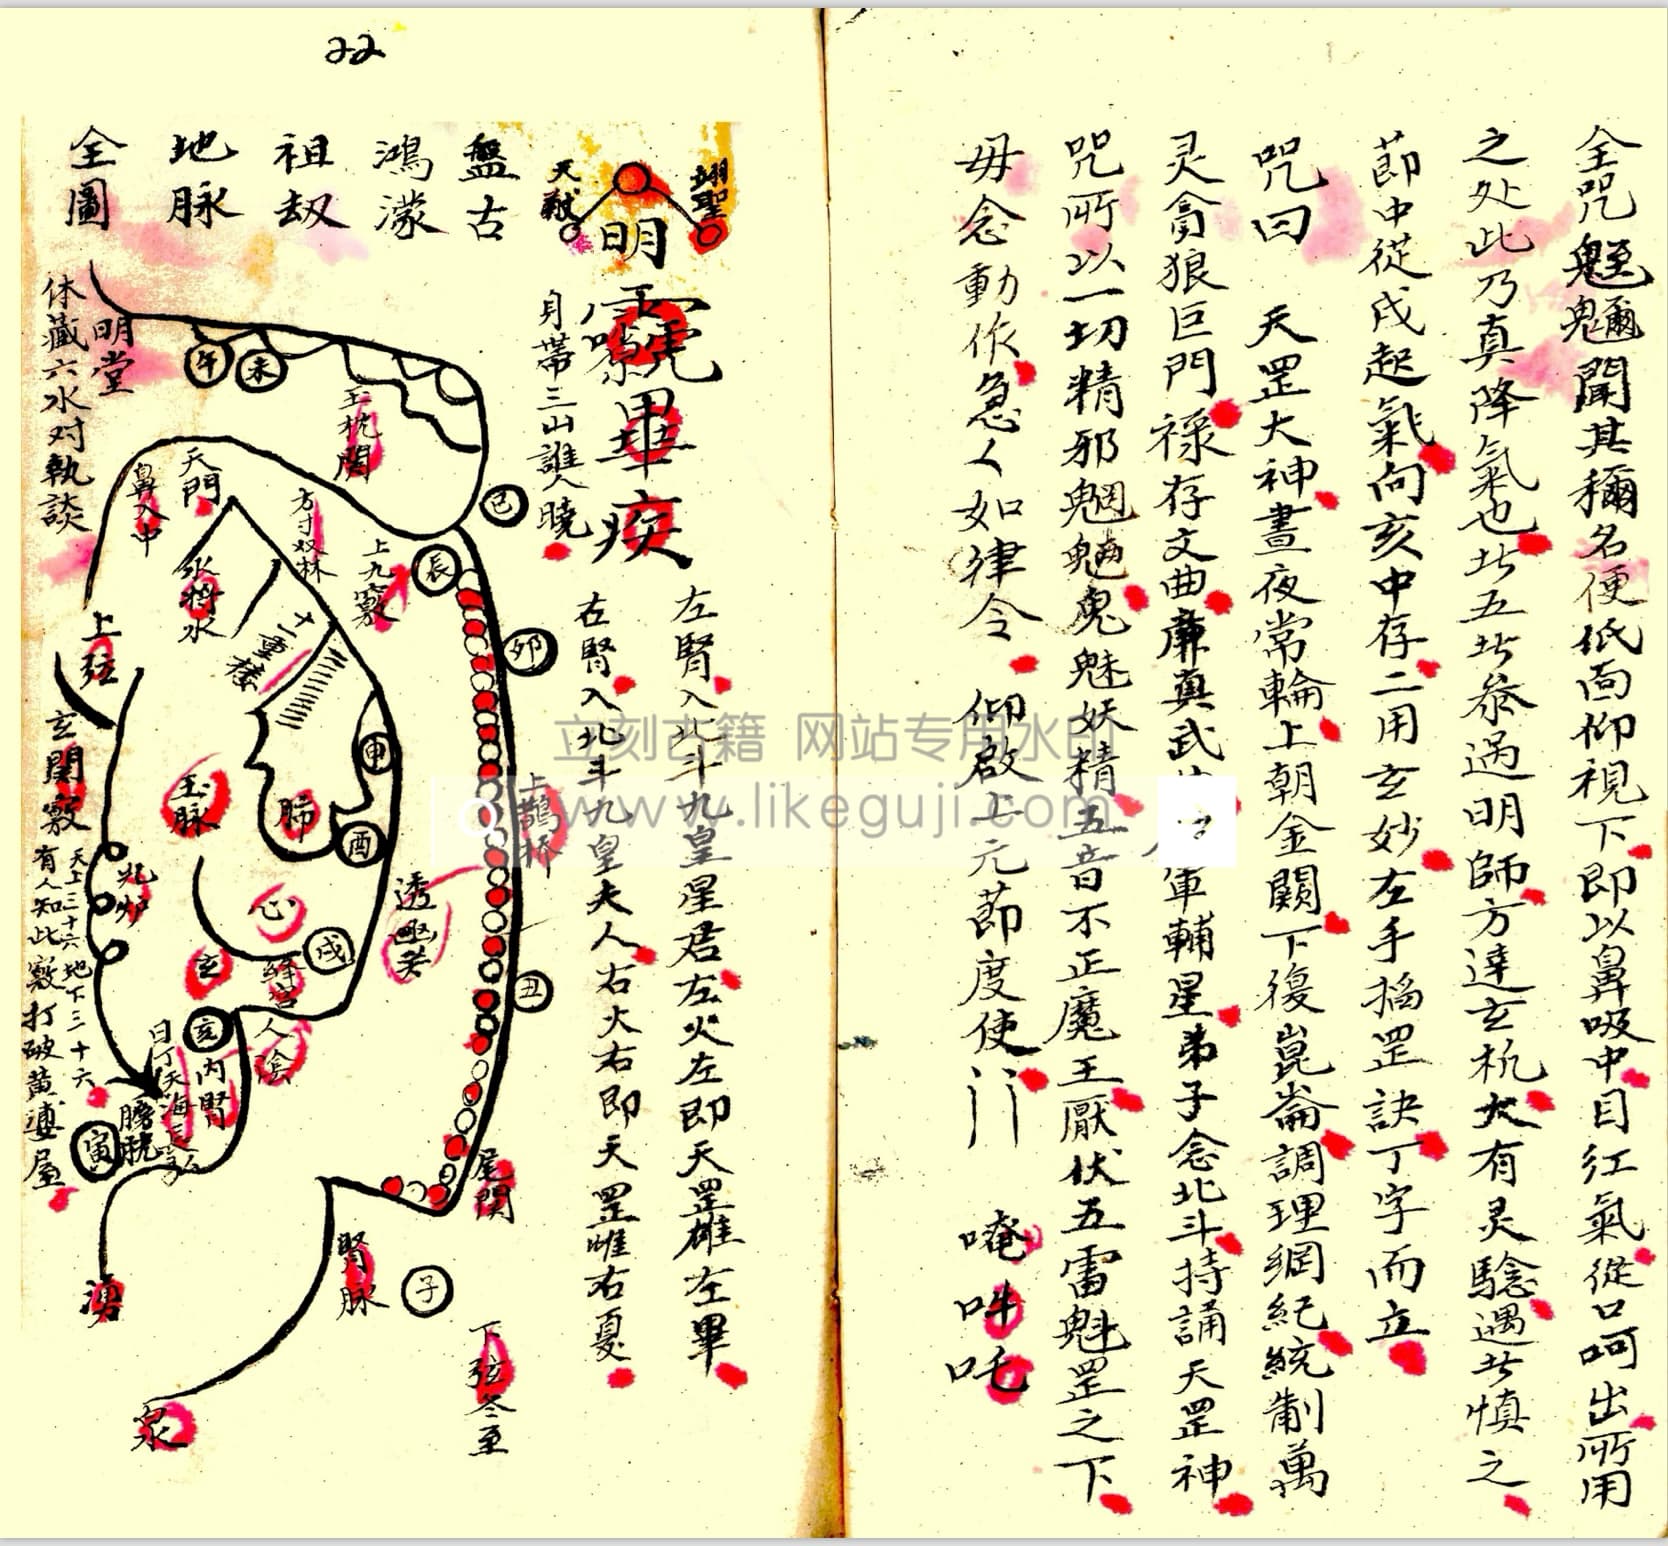 全咒魁魑聞其稱名便低面仰視下即以鼻吸中目红氣從口呵出所用
之处此乃真降氣也此五此叅遇明師方達玄机大有灵驗遇此慎之
莭中從戌起氣向亥中存二用玄妙左手搯罡訣丁字而立
咒曰 天罡大神晝夜常輪上朝金闕下復崑崙調理綱紀統制萬
灵貪狼巨門禄存文曲廉真武 軍輔星弟子念北斗持誦天罡神
咒所以一切精邪魍魎鬼魅妖精五音不正魔王厭伏五雷魁罡之下
毋念動作急々如律令 仰啟上元莭度使 唵吽吒
22
翊聖
天猷
明
身帶三山誰人曉
左腎入北斗九皇星君左火左即天罡雄左畢
右腎入北斗九皇夫人右火右即天罡惟右夏
盤古
鴻濛
祖刼
地脉
全圖
明堂
休藏六水对執談
午
未
玉枕関
巳
辰
卯
丑
子
寅
亥
戌
酉
申
天門
鼻入中
方寸双林
上九竅
重楼
上弦
玄関竅
天上三十六地下三十六
有人知此竅打破黄婆屋
玉脉
肺
心
玄
絳宮
人
陰
内腎
膀胱
上鵲桥
透
尾関
腎脉
下弦冬至
湧
泉
立刻古籍 网站专用水印
www.likeguji.com